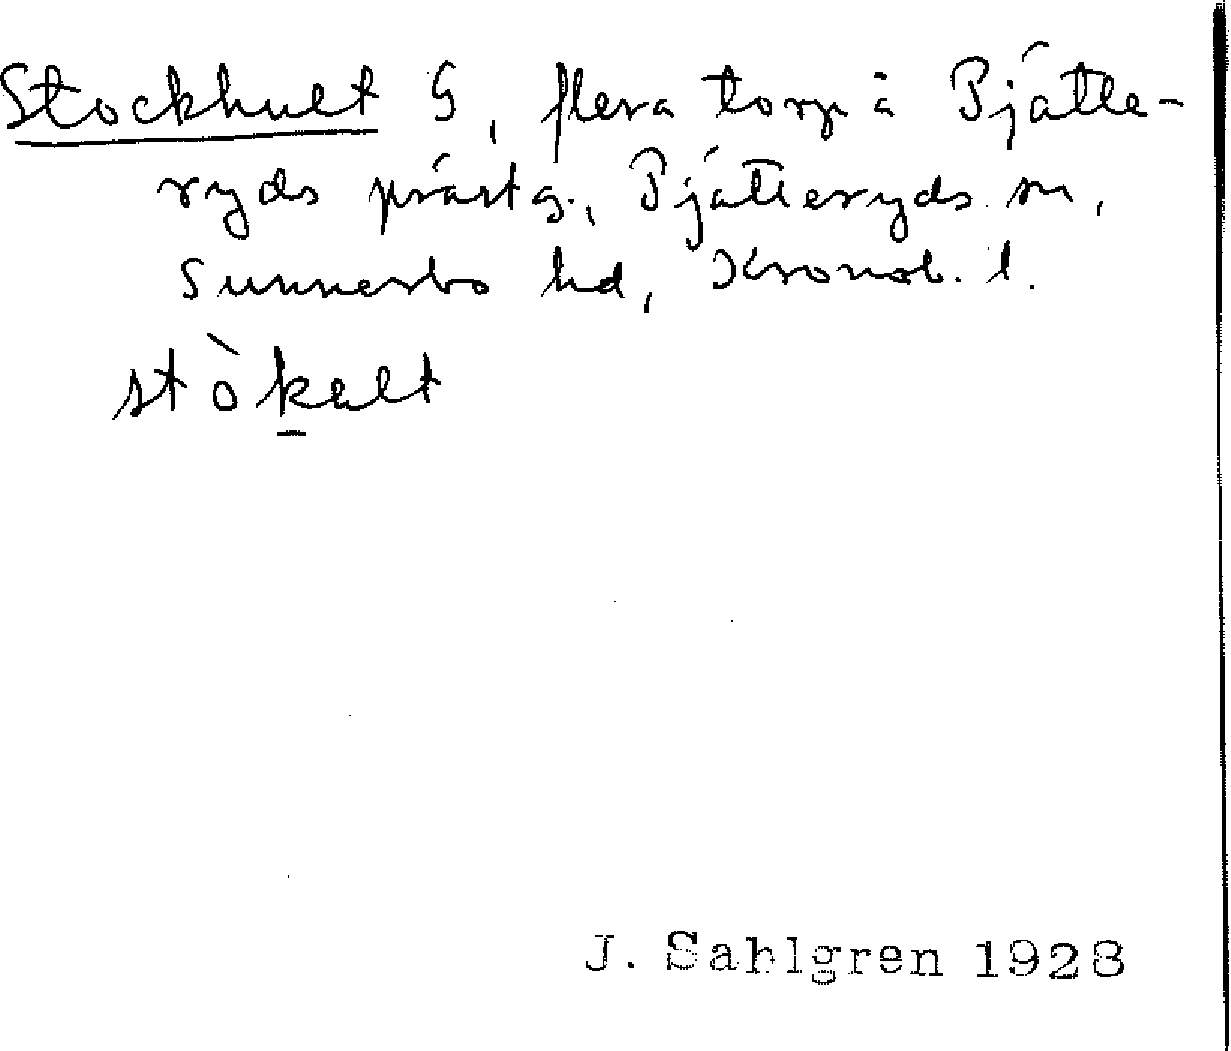 Stockhult G, flera torp å Pjätte-
ryds prästg., Pjätteryds sn,
Sunnerbo hd, Kronob. l.
stòkalt
J. Sahlgren 1928